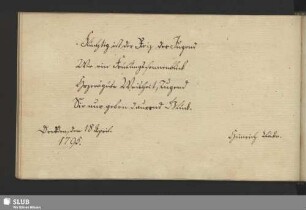 Flüchtig ist der Reiz der Jugend
Wie ein Frühlingssonnenblick
Herzensgüte Weisheit, Tugend
Sie nur geben dauernd Glück.
Dresden, den 18 April.
1795.
Heinrich
SLUB
Wir führen Wissen.